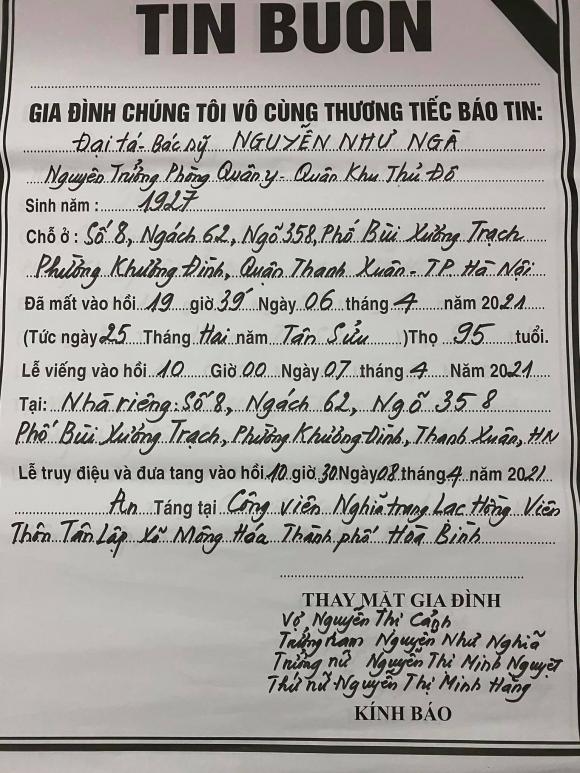 TIN BUỒN
GIA ĐÌNH CHÚNG TÔI VÔ CÙNG THƯƠNG TIẾC BÁO TIN:
Đại tá - Bác sỹ NGUYỄN NHƯ NGÀ
Nguyên Trưởng Phòng Quân y - Quân Khu Thủ Đô
Sinh năm : 1927
Chỗ ở : Số 8, Ngách 62, Ngõ 358, Phố Bùi Xương Trạch
Phường Khương Đình, Quận Thanh Xuân - TP. Hà Nội
Đã mất vào hồi 19 giờ 39' Ngày 06 tháng 4 năm 2021
(Tức ngày 25 Tháng Hai năm Tân Sửu )Thọ 95 tuổi.
Lễ viếng vào hồi 10 Giờ 00 Ngày 07 tháng 4 Năm 2021
Tại: Nhà riêng: Số 8, Ngách 62, Ngõ 358
Phố Bùi Xương Trạch, Phường Khương Đình, Thanh Xuân, HN
Lễ truy điệu và đưa tang vào hồi 10 giờ 30 Ngày 08 tháng 4 năm 2021
An Táng tại Công viên Nghĩa trang Lạc Hồng Viên
Thôn Tân Lập Xã Mông Hóa Thành phố Hòa Bình
THAY MẶT GIA ĐÌNH
Vợ Nguyễn Thị Cảnh
Trưởng nam Nguyễn Như Nghĩa
Trưởng nữ Nguyễn Thị Minh Nguyệt
Thứ nữ - Nguyễn Thị Minh Hằng
KÍNH BÁO